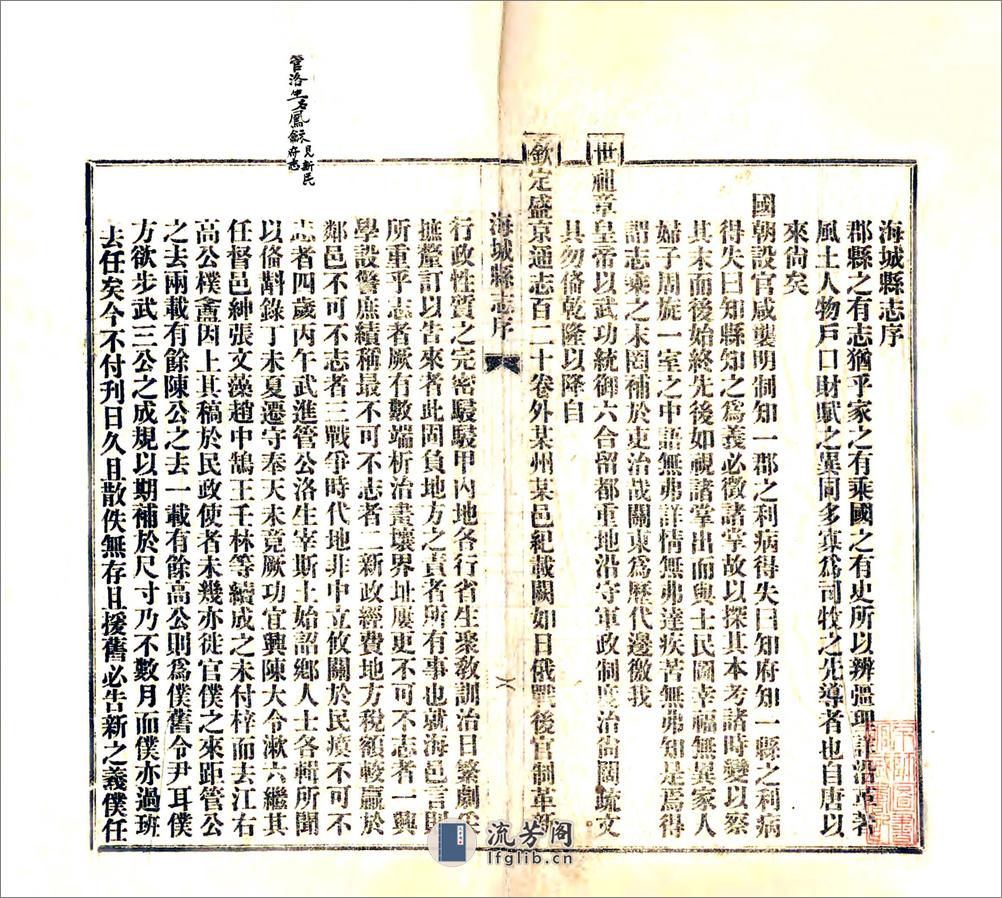 海城縣志序
郡縣之有志猶乎家之有乘國之有史所以辨彊理詳沿革著
風土人物戶口財賦之異同多寡爲司牧之先導者也自唐以
來尙矣
國朝設官咸襲明制知一郡之利病得失曰知府知一縣之利病
得失曰知縣知之爲義必徵諸掌故以探其本考諸時變以察
其末而後始終先後如視諸掌出而與士民圖幸福無異家人
婦子周旋一室之中語無弗詳情無弗達疾苦無弗知是焉得
謂志乘之末罔補於吏治哉關東爲歷代邊徼我
世祖章皇帝以武功統御六合留都重地沿守軍政制度治尙闊疏文
具勿俻乾隆以降自
欽定盛京通志百二十卷外某州某邑紀載闕如日俄戰後官制革新
海城縣志序
六
行政性質之完密駸駸甲內地各行省生聚敎訓治日繁劇采
摭釐訂以吿來者此固負地方之責者所有事也就海邑言則
所重乎志者厥有數端析治畫壤界址屢更不可不志者一興
學設警庶績稱最不可不志者二新政經費地方稅額較贏於
鄰邑不可不志者三戰爭時代地非中立攸關於民瘼不可不
志者四歲丙午武進管公洛生宰斯土始詔鄕人士各輯所聞
以俻斠錄丁未夏遷守奉天未竟厥功宜興陳大令漱六繼其
任督邑紳張文藻趙中鵠王壬林等續成之未付梓而去江右
高公樸盦因上其稿於民政使者未幾亦徙官僕之來距管公
之去兩載有餘陳公之去一載有餘高公則爲僕舊令尹耳僕
方欲步武三公之成規以期補於尺寸乃不數月而僕亦過班
去任矣今不付刊日久且散佚無存且援舊必吿新之義僕任
管洛生名鳳龢見新民府志
流芳阁
lfglib.cn